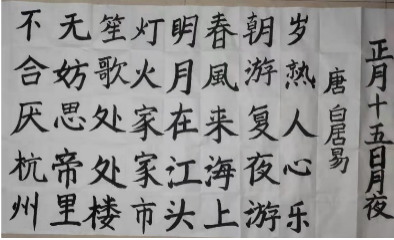 正月十五日月夜
唐 白居易
岁熟人心乐
朝游复夜游
春風来海上
明月在江头
灯火家家市
笙歌处处楼
无妨思帝里
不合厌杭州